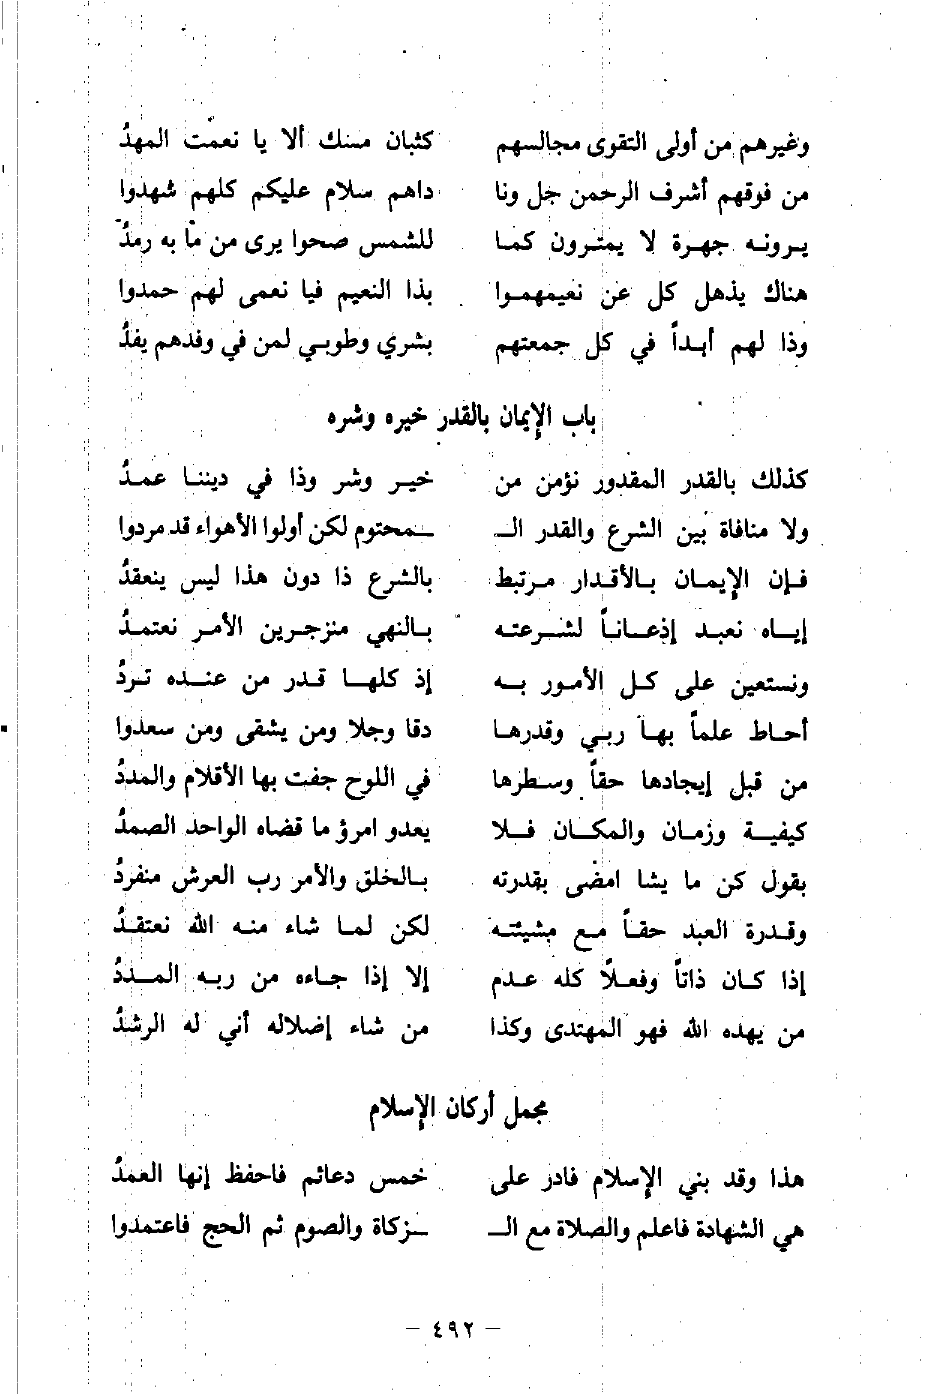 وغيرهم من أولى التقوى مجالسهم كثبان مسك ألا يا نعمت المهدُ
من فوقهم أشرف الرحمن جل ونا داهم سلام عليكم كلهم شهدوا
يرونه جهرة لا يمترون كما للشمس صحوا يرى من ما به رمدُ
هناك يذهل كل عن نعيمهموا بذا النعيم فيا نعمى لهم حمدوا
وذا لهم أبداً في كل جمعتهم بشري وطوبي لمن في وفدهم يفدُ
باب الإيمان بالقدر خيره وشره
كذلك بالقدر المقدور نؤمن من خير وشر وذا في ديننا عمدُ
ولا منافاة بين الشرع والقدر الـ ـمحتوم لكن أولوا الأهواء قد مردوا
فإن الإيمان بالأقدار مرتبط بالشرع ذا دون هذا ليس ينعقدُ
إياه نعبد إذعاناً لشرعته بالنهي منزجرين الأمر نعتمدُ
ونستعين على كل الأمور به إذ كلها قدر من عنده تردُ
أحاط علماً بها ربي وقدرها دقا وجلا ومن يشقى ومن سعدوا
من قبل إيجادها حقاً وسطرها في اللوح جفت بها الأقلام والمددُ
كيفية وزمان والمكان فلا يعدو امرؤ ما قضاه الواحد الصمدُ
بقول كن ما يشا امضى بقدرته بالخلق والأمر رب العرش منفردُ
وقدرة العبد حقاً مع مشيئته لكن لما شاء منه الله نعتقدُ
إذا كان ذاتاً وفعلاً كله عدم إلا إذا جاءه من ربه المددُ
من يهده الله فهو المهتدى وكذا من شاء إضلاله أني له الرشدُ
مجمل أركان الإسلام
هذا وقد بني الإسلام فادر على خمس دعائم فاحفظ إنها العمدُ
هي الشهادة فاعلم والصلاة مع الـ ـزكاة والصوم ثم الحج فاعتمدوا
– ٤٩٢ –